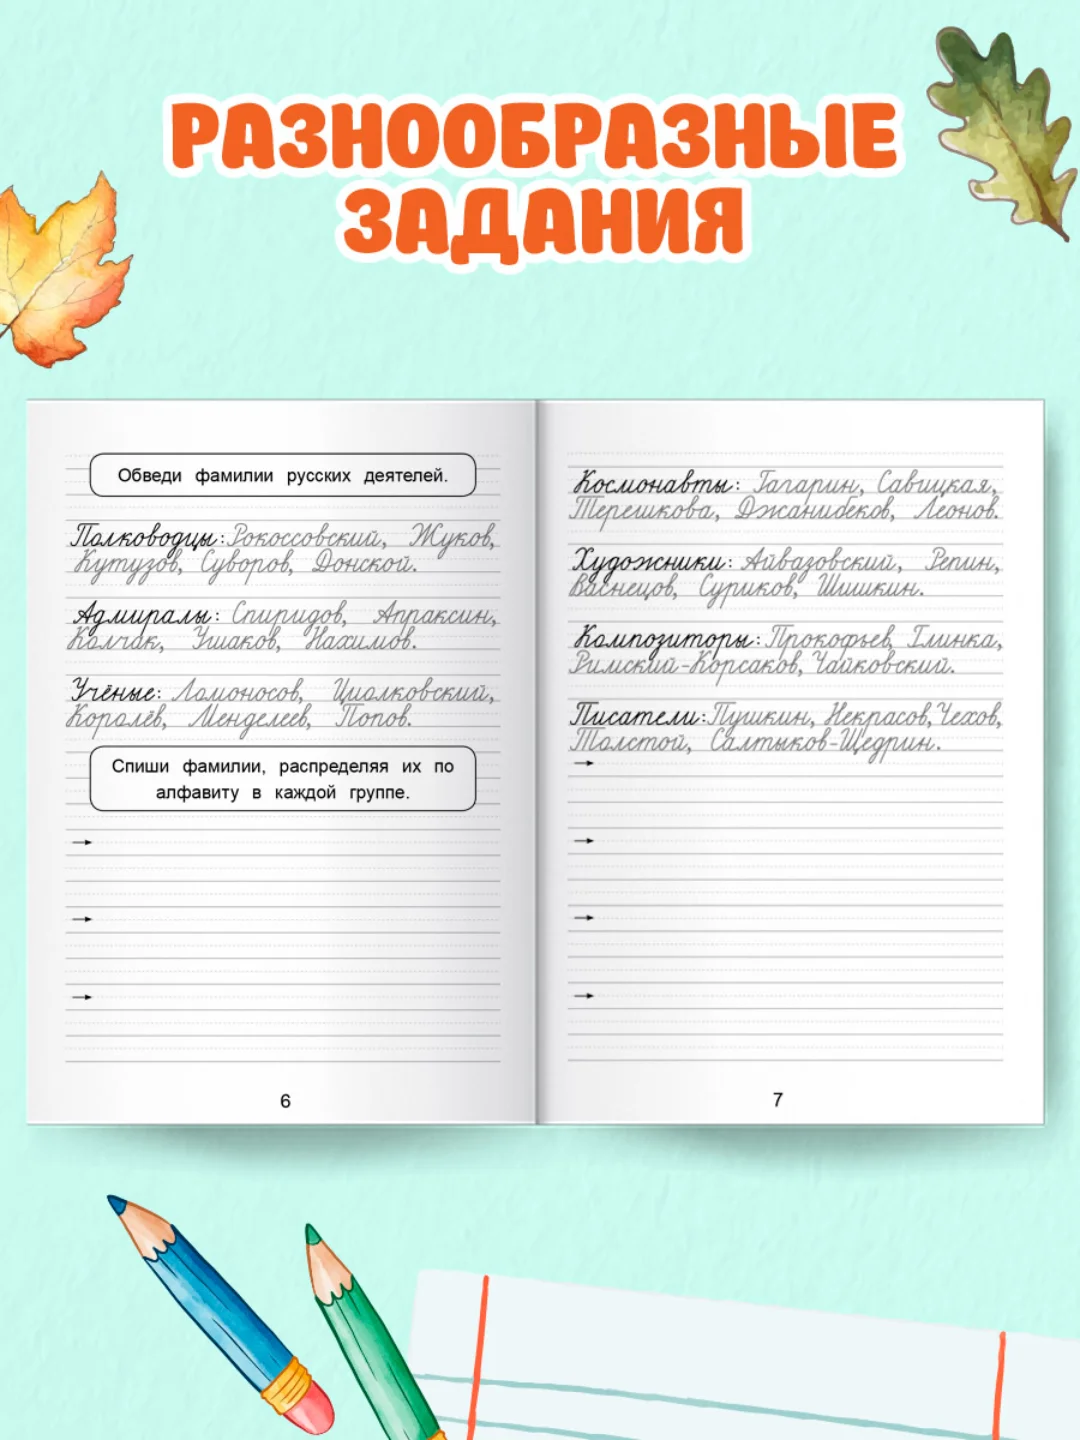 РАЗНООБРАЗНЫЕ
ЗАДАНИЯ
Обведи фамилии русских деятелей.
Полководцы: Рокоссовский, Жуков,
Кутузов, Суворов, Донской.
Адмиралы: Спиридов, Апраксин,
Колчак, Ушаков, Нахимов.
Учёные: Ломоносов, Циолковский,
Королёв, Менделеев, Попов.
Спиши фамилии, распределяя их по
алфавиту в каждой группе.
6
Космонавты: Гагарин, Савицкая,
Терешкова, Джанибеков, Леонов.
Художники: Айвазовский, Репин,
Васнецов, Суриков, Шишкин.
Композиторы: Прокофьев, Глинка,
Римский-Корсаков, Чайковский.
Писатели: Пушкин, Некрасов, Чехов,
Толстой, Салтыков-Щедрин.
7